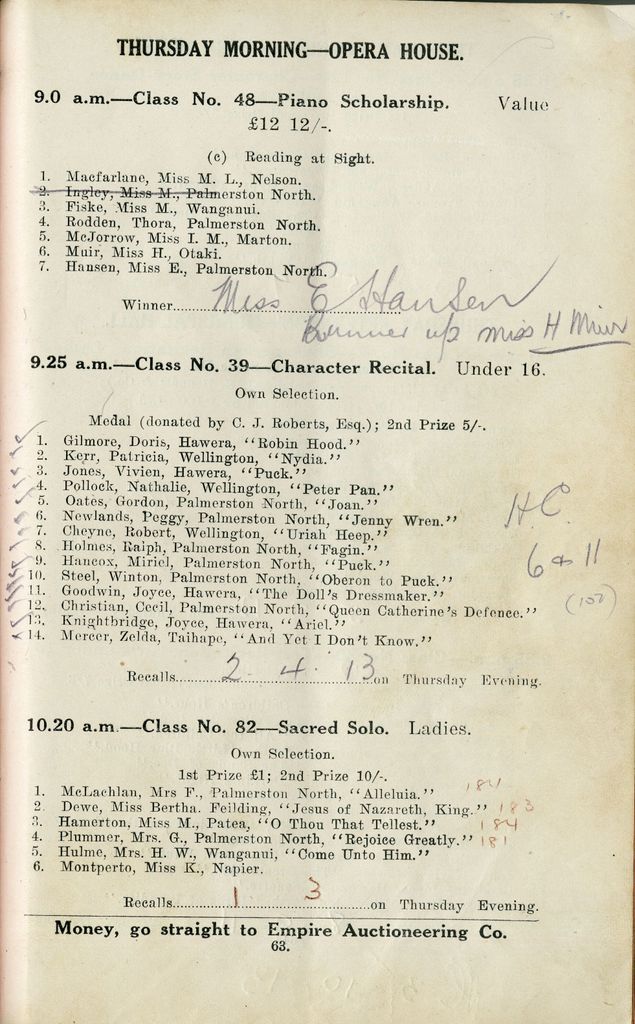 THURSDAY MORNING—OPERA HOUSE.
9.0 a.m.—Class No. 48—Piano Scholarship. Value
£12 12/-.
(c) Reading at Sight.
1. Macfarlane, Miss M. L., Nelson.
2. Ingley, Miss M., Palmerston North.
3. Fiske, Miss M., Wanganui.
4. Rodden, Thora, Palmerston North.
5. McJorrow, Miss I. M., Marton.
6. Muir, Miss H., Otaki.
7. Hansen, Miss E., Palmerston North.
Winner.......Miss E Hansen
Runner up miss H Muir
9.25 a.m.—Class No. 39—Character Recital. Under 16.
Own Selection.
Medal (donated by C. J. Roberts, Esq.); 2nd Prize 5/-.
1. Gilmore, Doris, Hawera, "Robin Hood."
2. Kerr, Patricia, Wellington, "Nydia."
3. Jones, Vivien, Hawera, "Puck."
4. Pollock, Nathalie, Wellington, "Peter Pan."
5. Oates, Gordon, Palmerston North, "Joan."
6. Newlands, Peggy, Palmerston North, "Jenny Wren." H C
7. Cheyne, Robert, Wellington, "Uriah Heep."
8. Holmes, Ralph, Palmerston North, "Fagin."
9. Hancox, Miriel, Palmerston North, "Puck." 6 & 11
10. Steel, Winton, Palmerston North, "Oberon to Puck."
11. Goodwin, Joyce, Hawera, "The Doll's Dressmaker."
12. Christian, Cecil, Palmerston North, "Queen Catherine's Defence."
13. Knightbridge, Joyce, Hawera, "Ariel."
14. Mercer, Zelda, Taihape, "And Yet I Don't Know."
Recalls.......2 . 4 . 13 on Thursday Evening.
10.20 a.m.—Class No. 82—Sacred Solo. Ladies.
Own Selection.
1st Prize £1; 2nd Prize 10/-.
1. McLachlan, Mrs F., Palmerston North, "Alleluia."
2. Dewe, Miss Bertha. Feilding, "Jesus of Nazareth, King." 183
3. Hamerton, Miss M., Patea, "O Thou That Tellest." 184
4. Plummer, Mrs. G., Palmerston North, "Rejoice Greatly." 181
5. Hulme, Mrs. H. W., Wanganui, "Come Unto Him."
6. Montperto, Miss K., Napier.
Recalls.......1 3.......on Thursday Evening.
Money, go straight to Empire Auctioneering Co.
63.